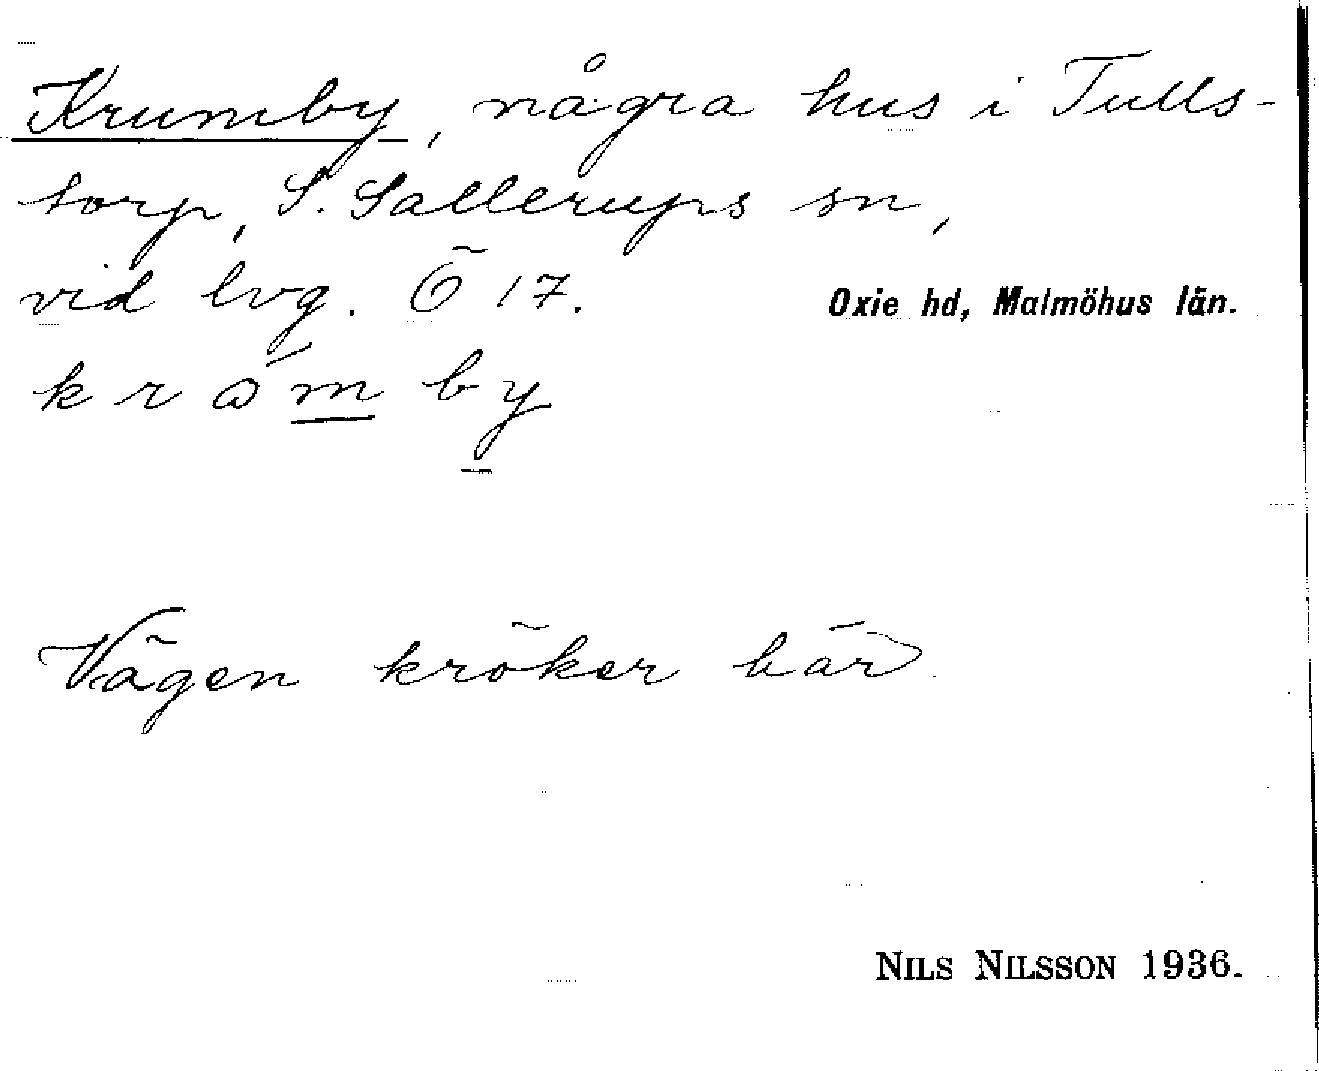 Krumby, några hus i Tulls-
torp, S. Sallerups sn,
vid lvg. Ö 17.
Oxie hd, Malmöhus län.
Vägen kröker här
NILS NILSSON 1936.